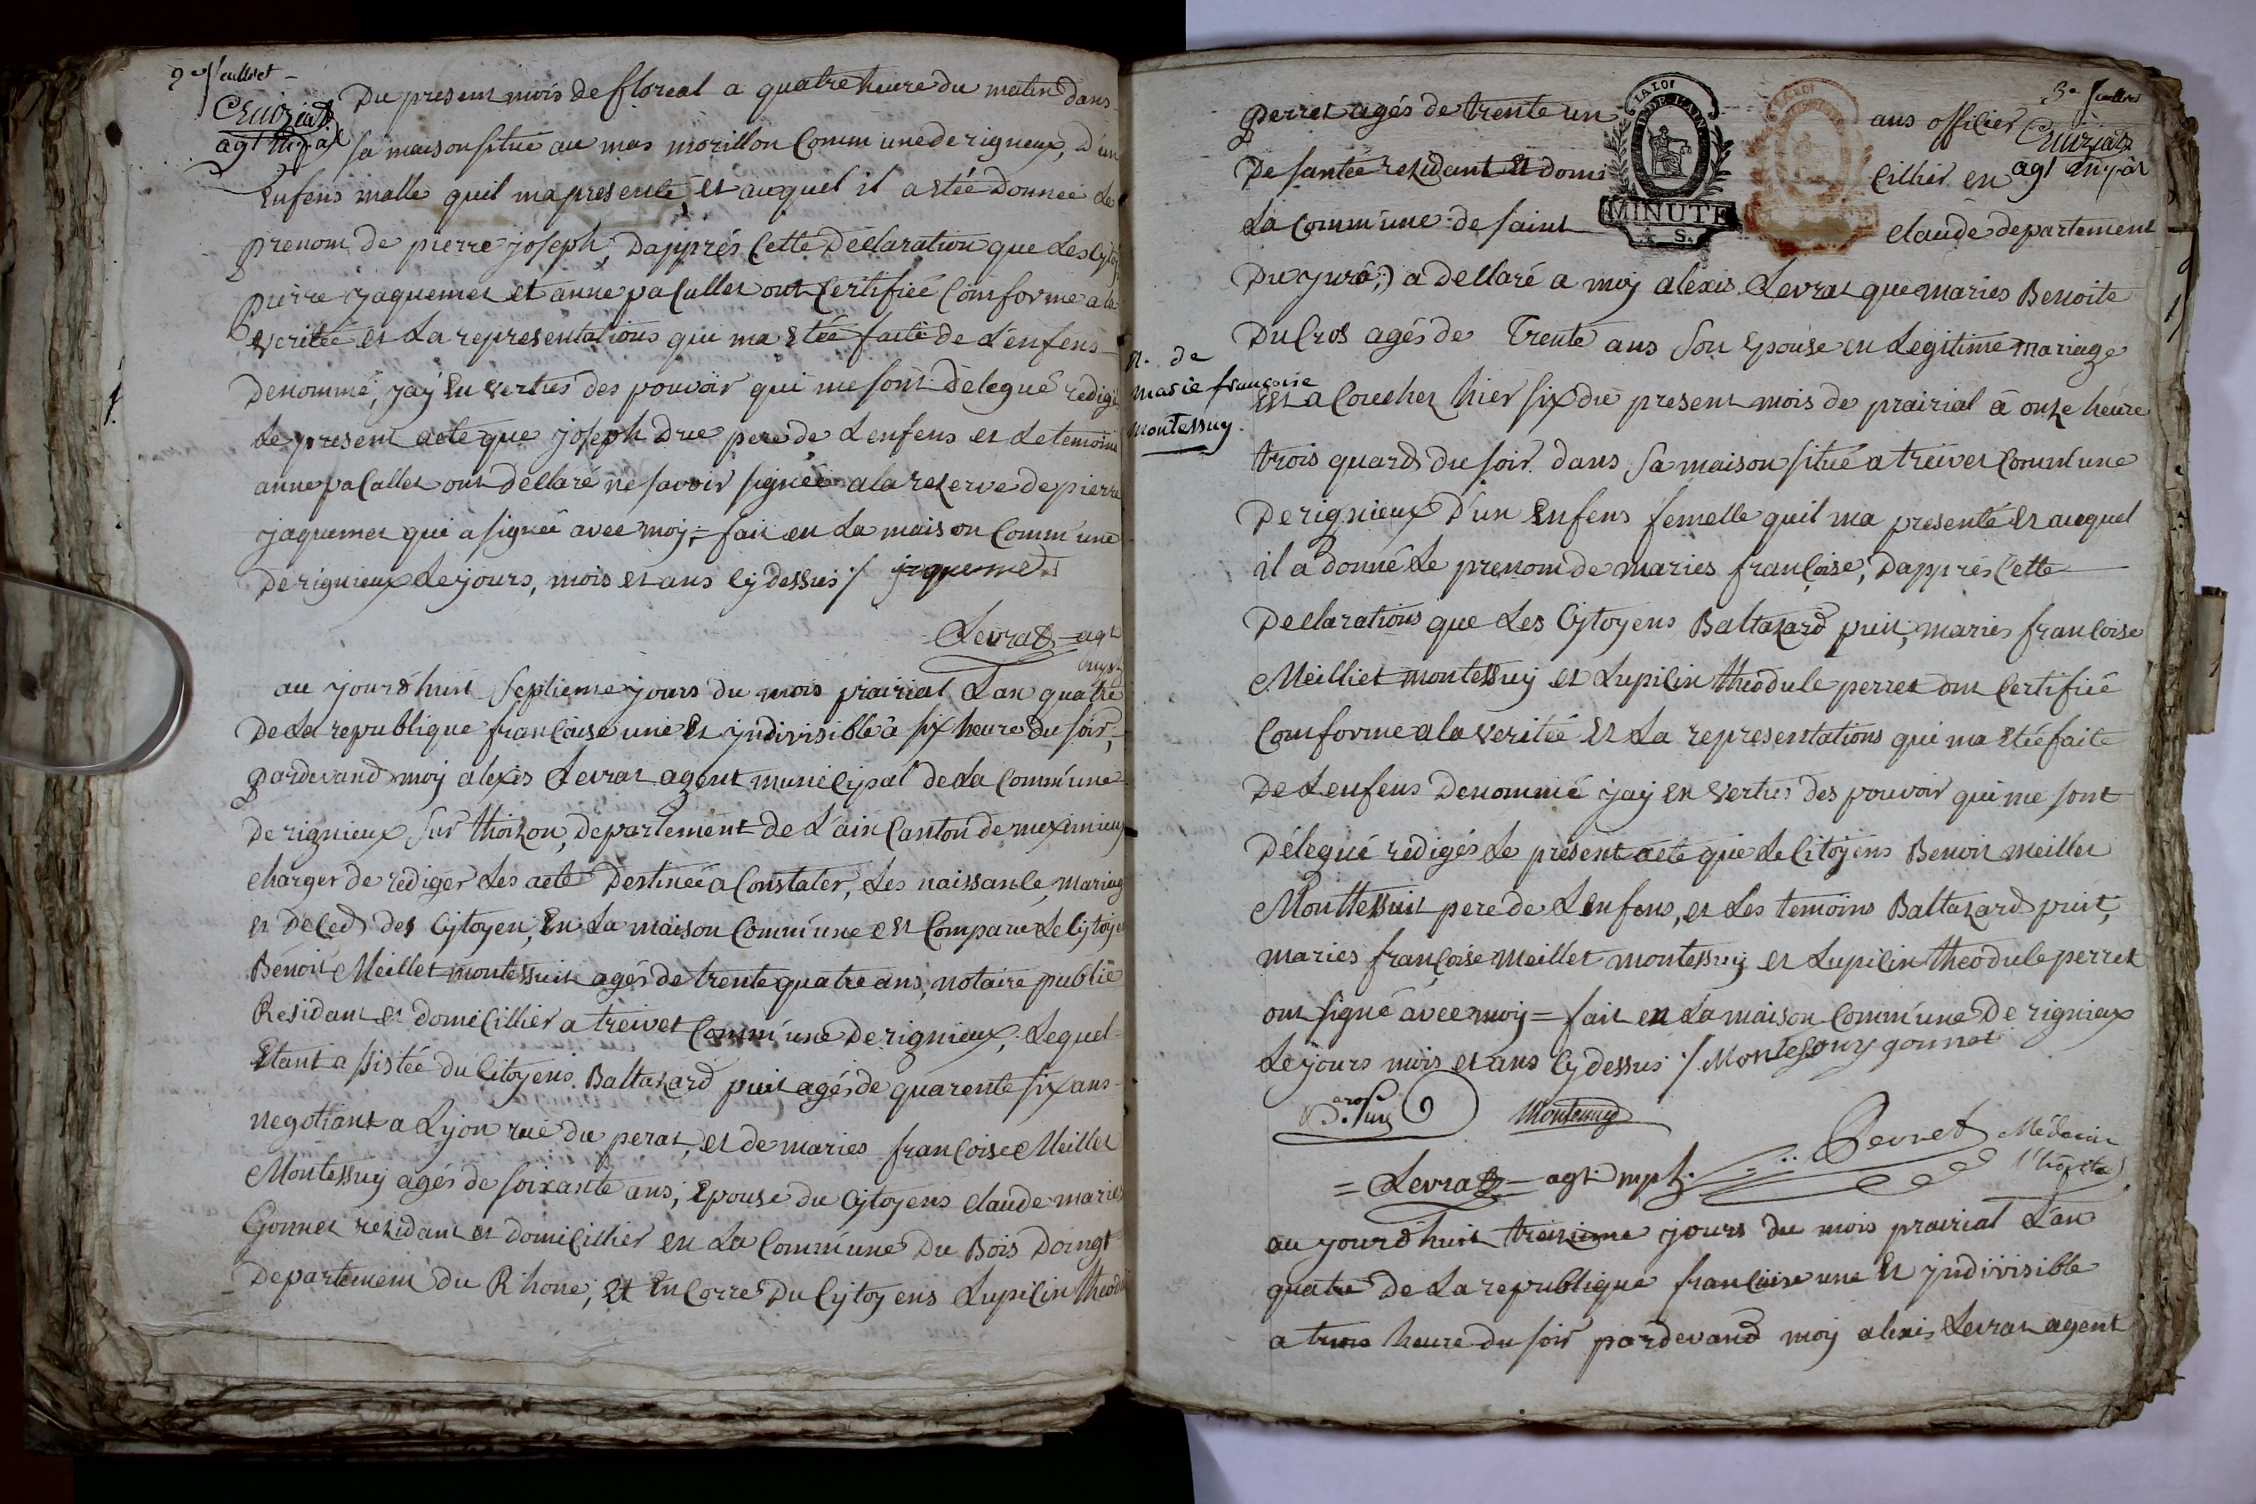 2e feuillet
Cruziat
agt mpal
Du present mois de floreal a quatre heure du matin dans
sa maison situé au mas morillon Commune de rigneux, d'un
Enfens malle quil ma presenté et auquel il a etée donnée Le
prenom de pierre joseph, Dapprés Cette Declaration que Les Cytoy
pierre jaquemet et anne paCallet ont Certifiée Comforme a la
veritée et La representations qui ma Etée faite de L'enfens
Denommé; jay En vertus des pouvoir qui me sont delegué redigé
Le present acte que joseph Due pere de Lenfens et Le temoins
anne paCallet ont dellaré ne savoir signée a la reserve de pierre
jaquemet qui a signée avec moy = fait en La maison Commune
De rignieux Le jours, mois et ans Cy dessus ./ jaquemet
Levrat = agt
mpal
au jourd'huit Septieme jours du mois prairial L'an quatre
De La republique française une Et yndivisible à six heure du soir,
pardevand moy alexis Levrat agent municipal de La Commune
De rignieux sur thoizon, departement de L'ain Canton de meximieux
charger de rediger Les acte Destinéé a Constater, Les naissance, mariag
et deced des Cytoyen, En La maison Commune est Comparu Le Cytoye
Benoit Meillet montessuit agés de trente quatre ans, notaire public
Residant et domiCillier a treivet Commune De rignieux, Lequel
Etant assistée du Citoyens Baltazard puit agés de quarente six ans
negotiant a Lyon rue du perat, et de maries françoise Meillet
Montessuy agés de soixante ans, Epouse du Cytoyens claude maries
Gonnet rezidant et domiCillier en La Commune Du Bois Doingt
Departement du Rhone, et EnCorre Du Cytoyens Lupicin theodu
3e feuillet
Cruziat
agt mpal
LA LOI
MINUTE
perret agés de trente un ans officier
De santée rezidant et domi Cillier en
La Commune de saint claude departement
Du jura;) a Dellaré a moy alexis Levrat que maries Benoite
DuCros agés de Trente ans Son Epouse en Legitime mariage
n. de
marie françoise
montessuy
Est aCoucher hier six du present mois de prairial à onze heure
trois quard du soir dans Sa maison situé a treivet Commune
De rignieux D'un Enfens femelle quil ma presenté Et auquel
il a donné Le prenom de maries françoise, Dapprés Cette
Declarations que Les Cytoyens Baltazard puit, maries francoise
Meilliet montessuy et Lupicin theodule perret ont Certifiéé
Comforme a la veritée Et La representations qui ma Etée faite
De Lenfens Denommé jay en vertus des pouvoir qui me sont
Délegué redigés Le présent acte que Le Citoyens Benoit meillet
Monttessuit pere de Lenfens, et Les temoins Baltazard puit,
maries françoise meillet montessuy et Lupicin theodule perret
ont signé avec moy = fait en La maison Commune De rignieux
Le jours mois et ans Cy dessus ./ Montessuy gonnet
Montessuy
Perret Médecin
= Levrat = agt mpl.
au jourd'huit treizieme jours du mois prairial L'an
quatre De La republique française une Et yndivisible
a trois heure du soir pardevand moy alexis Levrat agent